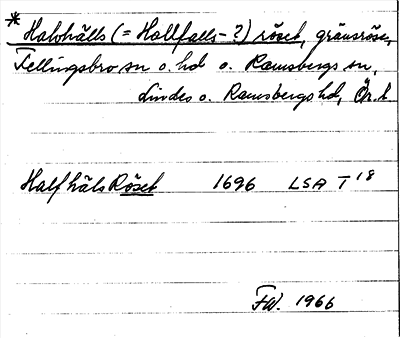 * Halvhälls (= Hallfalls-?) röset, gränsröse,
Fellingsbro sn o. hd o. Ramsbergs sn,
Lindes o. Ramsbergs hd, Ör. l.
Halfhäls Röset 1696 LSA T 18
FW. 1966